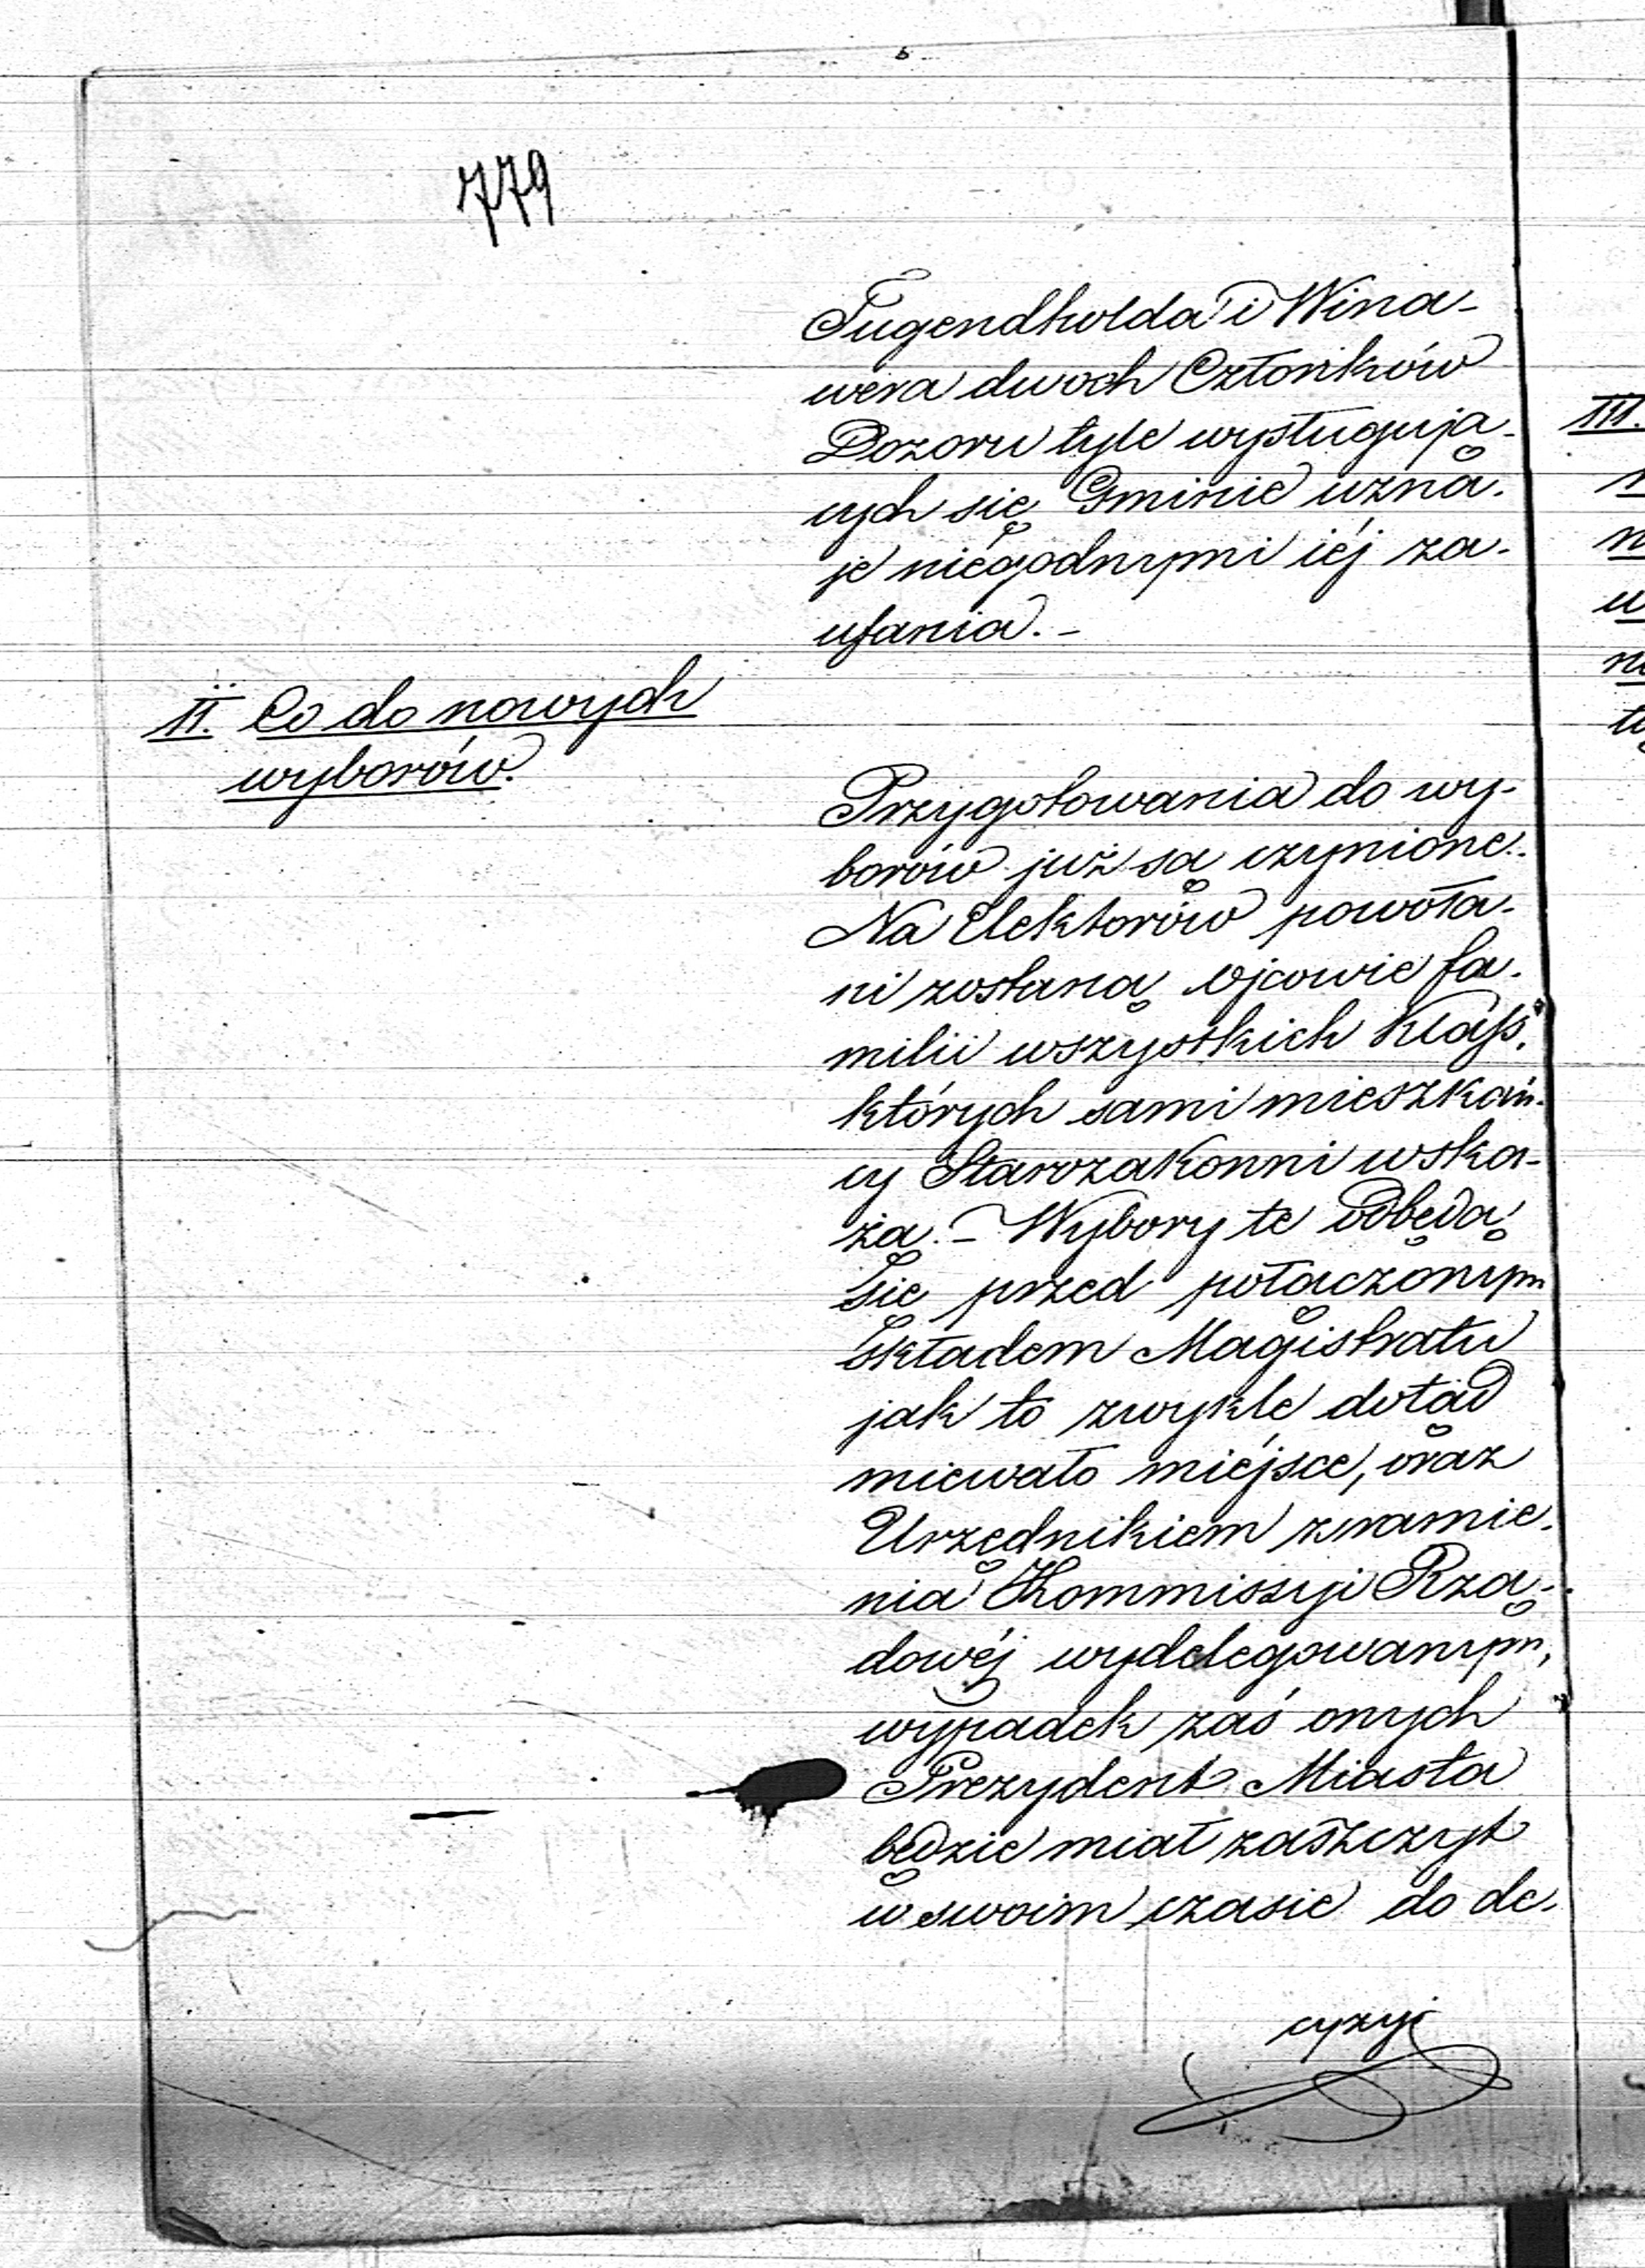 779
Tugendholda i Wina-
wera dwoch Członków
Dozoru tyle wysługują-
cych się Gminie uzna-
je niegodnymi iéj za-
ufania. -
II. Co do nowych
wyborów.
Przygotowania do wy-
borów już są czynione.
Na Elektorów powoła-
ni zostaną ojcowie fa-
milii wszystkich Klass,
których sami mieszkań-
cy Starozakonni wska-
żą. - Wybory te odbędą
się przed połączonym
składem Magistratu
jak to zwykle dotąd
miewało miéjsce, oraz
Urzędnikiem z ramie-
nia Kommissyi Rzą-
dowéj wydelegowanym,
wypadek zaś onych
Prezydent Miasta
będzie miał zaszczyt
w swoim czasie do de-
cyzyi
III.